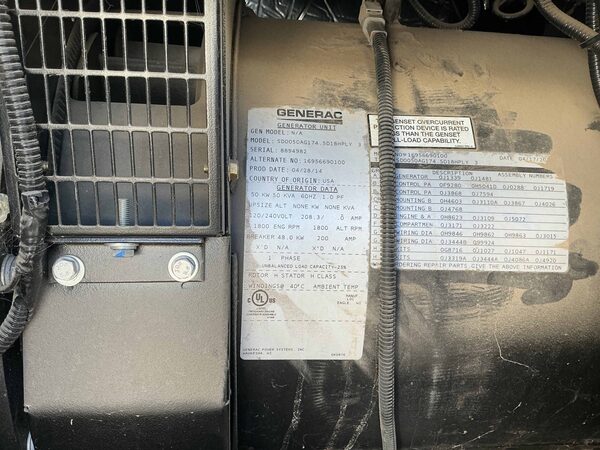 GENERAC
GENERATOR UNIT
GEN MODEL: N/A
MODEL: SD0050AG174.5D18HPLY 3
SERIAL: 8894982
ALTERNATE NO: 16956690100
PROD DATE: 04/28/14
COUNTRY OF ORIGIN: USA
GENERATOR DATA
50 KW 50 KVA 60HZ 1.0 PF
UPSIZE ALT NONE KW NONE KVA
120/240VOLT 208.3/ 0 AMP
1800 ENG RPM 1800 ALT RPM
BREAKER 48.0 KW 200 AMP
X'D N/A X"D N/A
1 PHASE
UNBALANCED LOAD CAPACITY-25%
ROTOR H STATOR H CLASS
WINDINGS@ 40°C AMBIENT TEMP
UL
C US
GENERAC POWER SYSTEMS, INC
WAUKESHA, WI
GENSET OVERCURRENT
DEVICE IS RATED
LESS THAN THE GENSET
CAPABILITY.
16956690100
SD0050AG174.5D18HPLY 3
DATE 04/17/20
DESCRIPTION ASSEMBLY NUMBERS
GENERATOR 0J1339 0J1481
CONTROL PA 0F9280 0H5041D 0J0288 0J1719
CONTROL PA 0J3968 0J7594
MOUNTING B 0H4603 0J3110A 0J3867 0J4026
MOUNTING B 0J4768
ENGINE & A 0H8623 0J3109 0J5072
COMPARTMEN 0J3171 0J3222
WIRING DIA 0H9846 0H9862 0H9863 0J3015
WIRING DIA 0J3444B 0G9924
KITS 0G8716 0J1027 0J1047 0J1171
KITS 0J3319A 0J3444A 0J4086A 0J4920
ORDERING REPAIR PARTS GIVE THE ABOVE INFORMATION